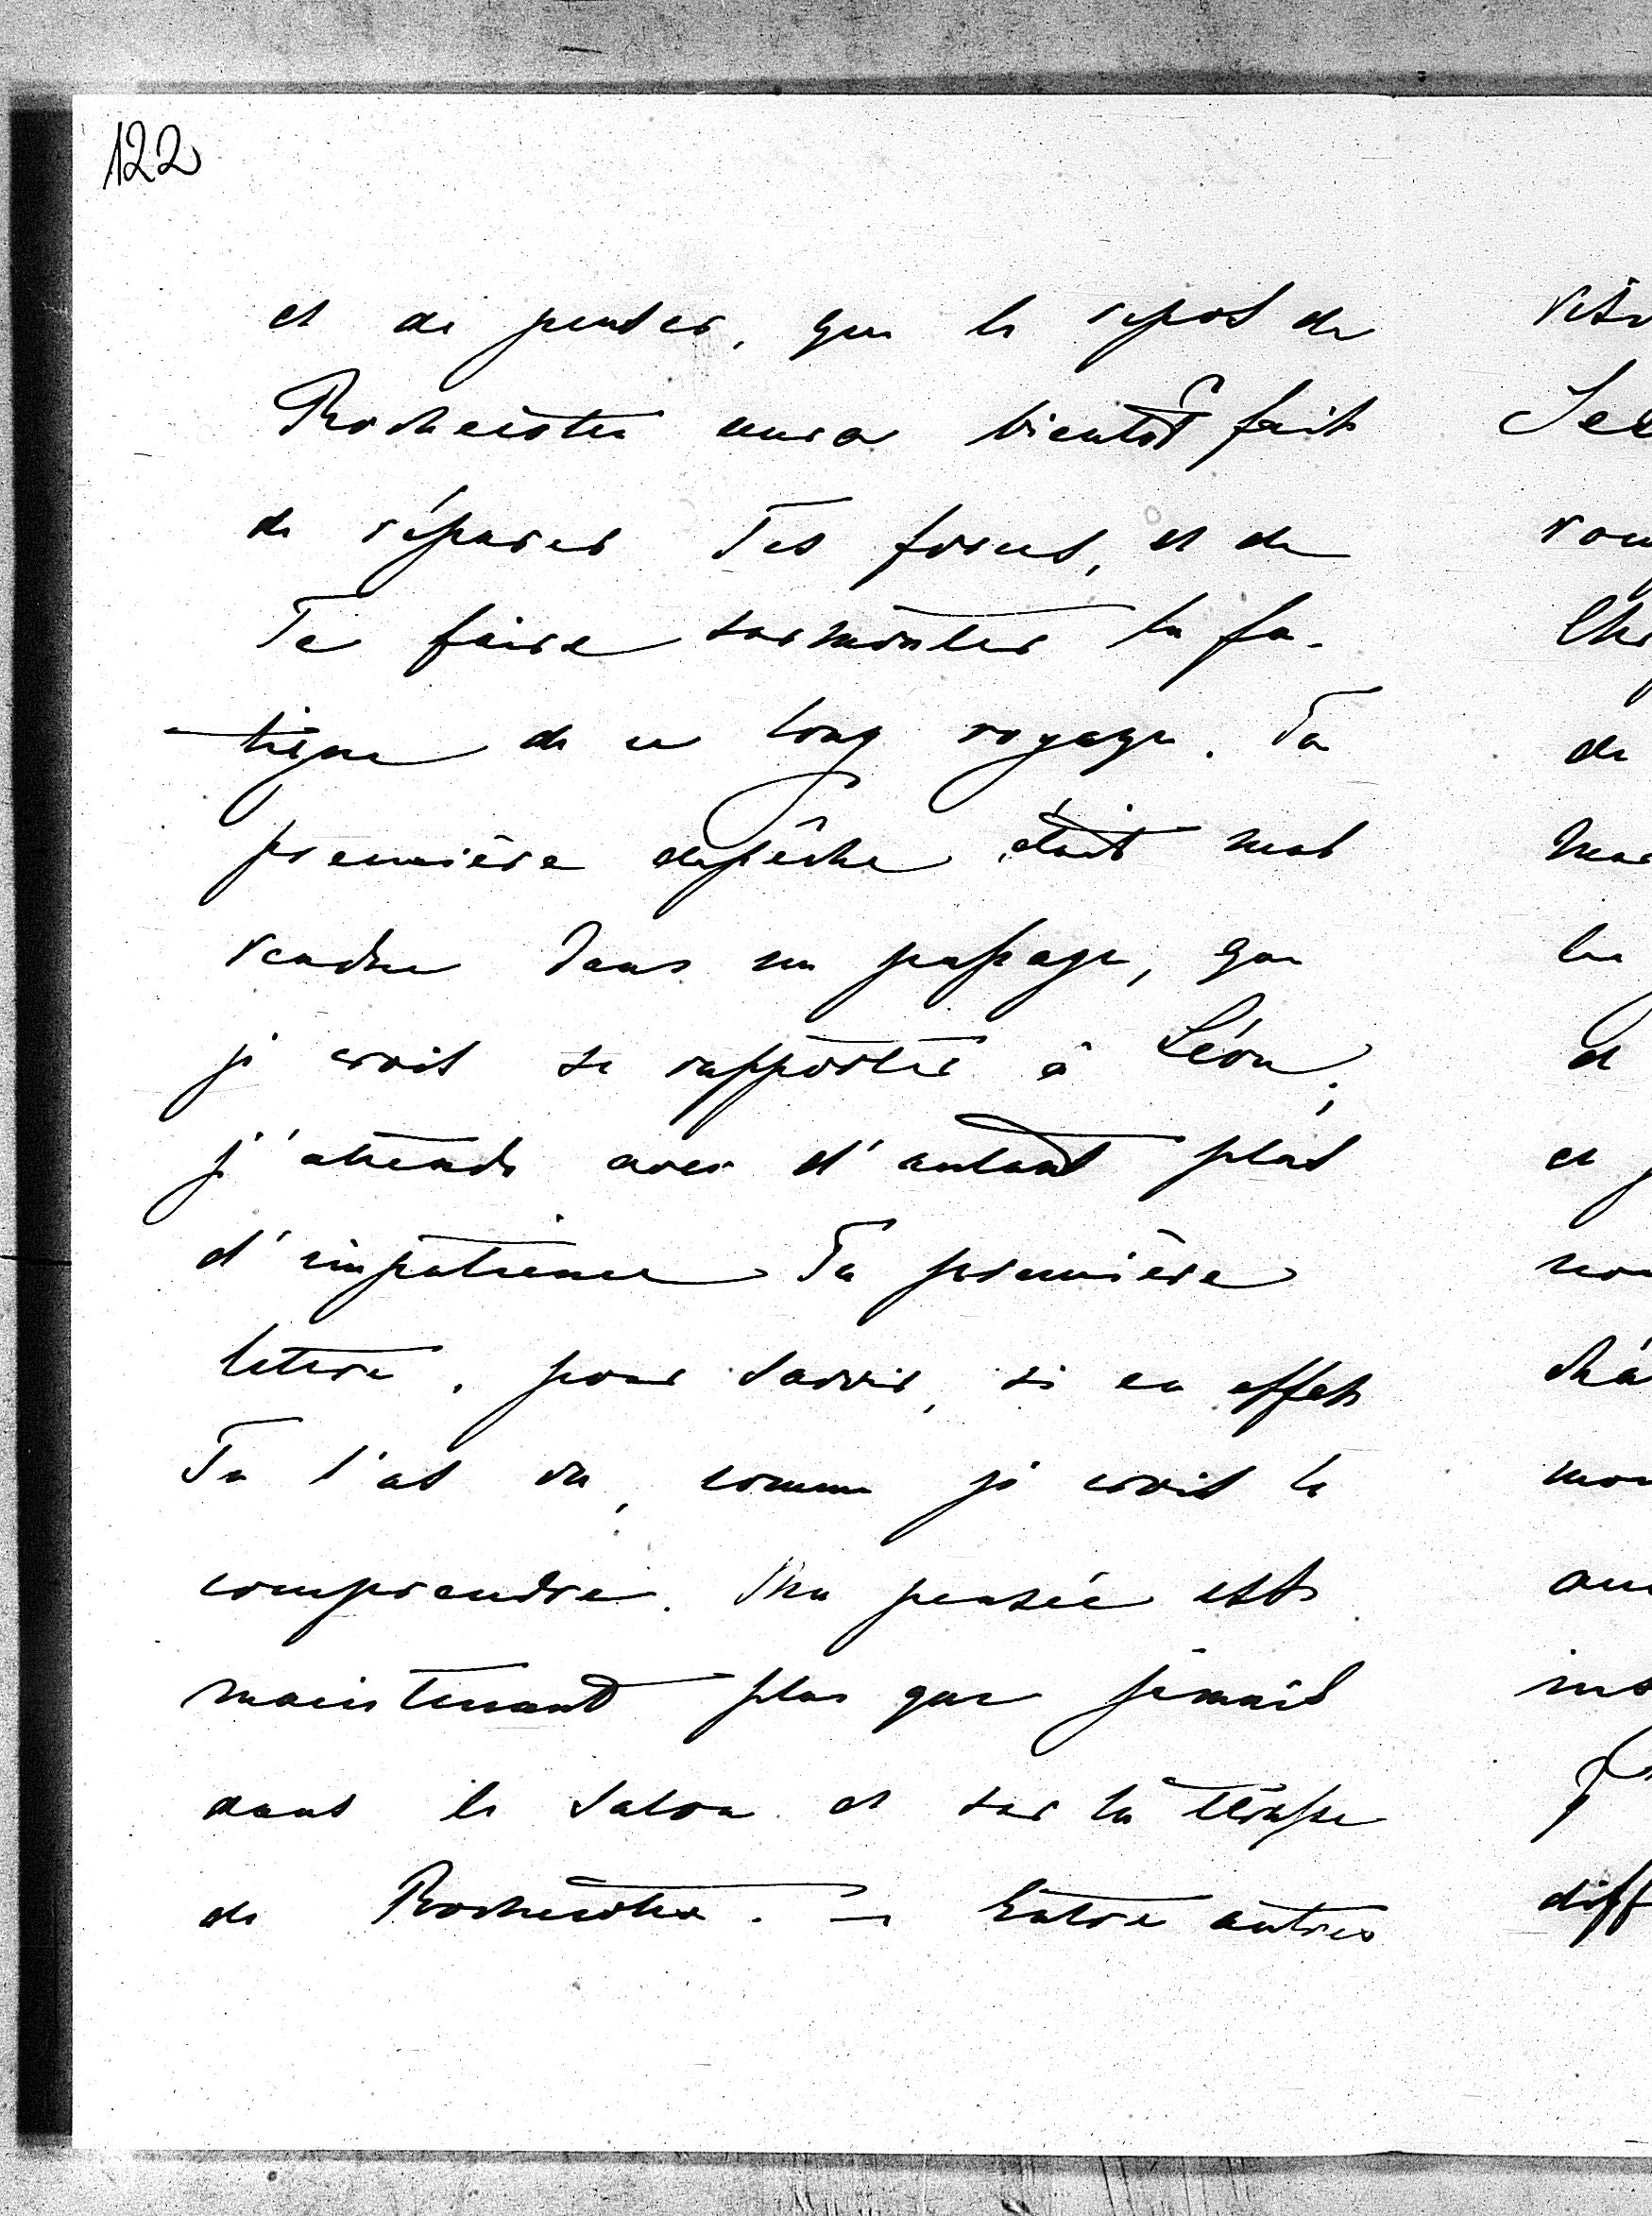 122
et de penser, que le repos de
Rochecotte aura bientôt fait
de réparer Tes forces, et de
Te faire surmonter la fa-
tigue de ce long voyage. Ta
première dépêche était mal
rendue dans un passage, que
je crois se rapporter à Léon;
j'attends avec d'autant plus
d'impatience Ta première
lettre, pour savoir, si en effet
Tu l'as vu, comme je crois le
comprendre. Ma pensée est
maintenant plus que jamais
dans le salon et sur la terrasse
de Rochecotte. — Entre autres